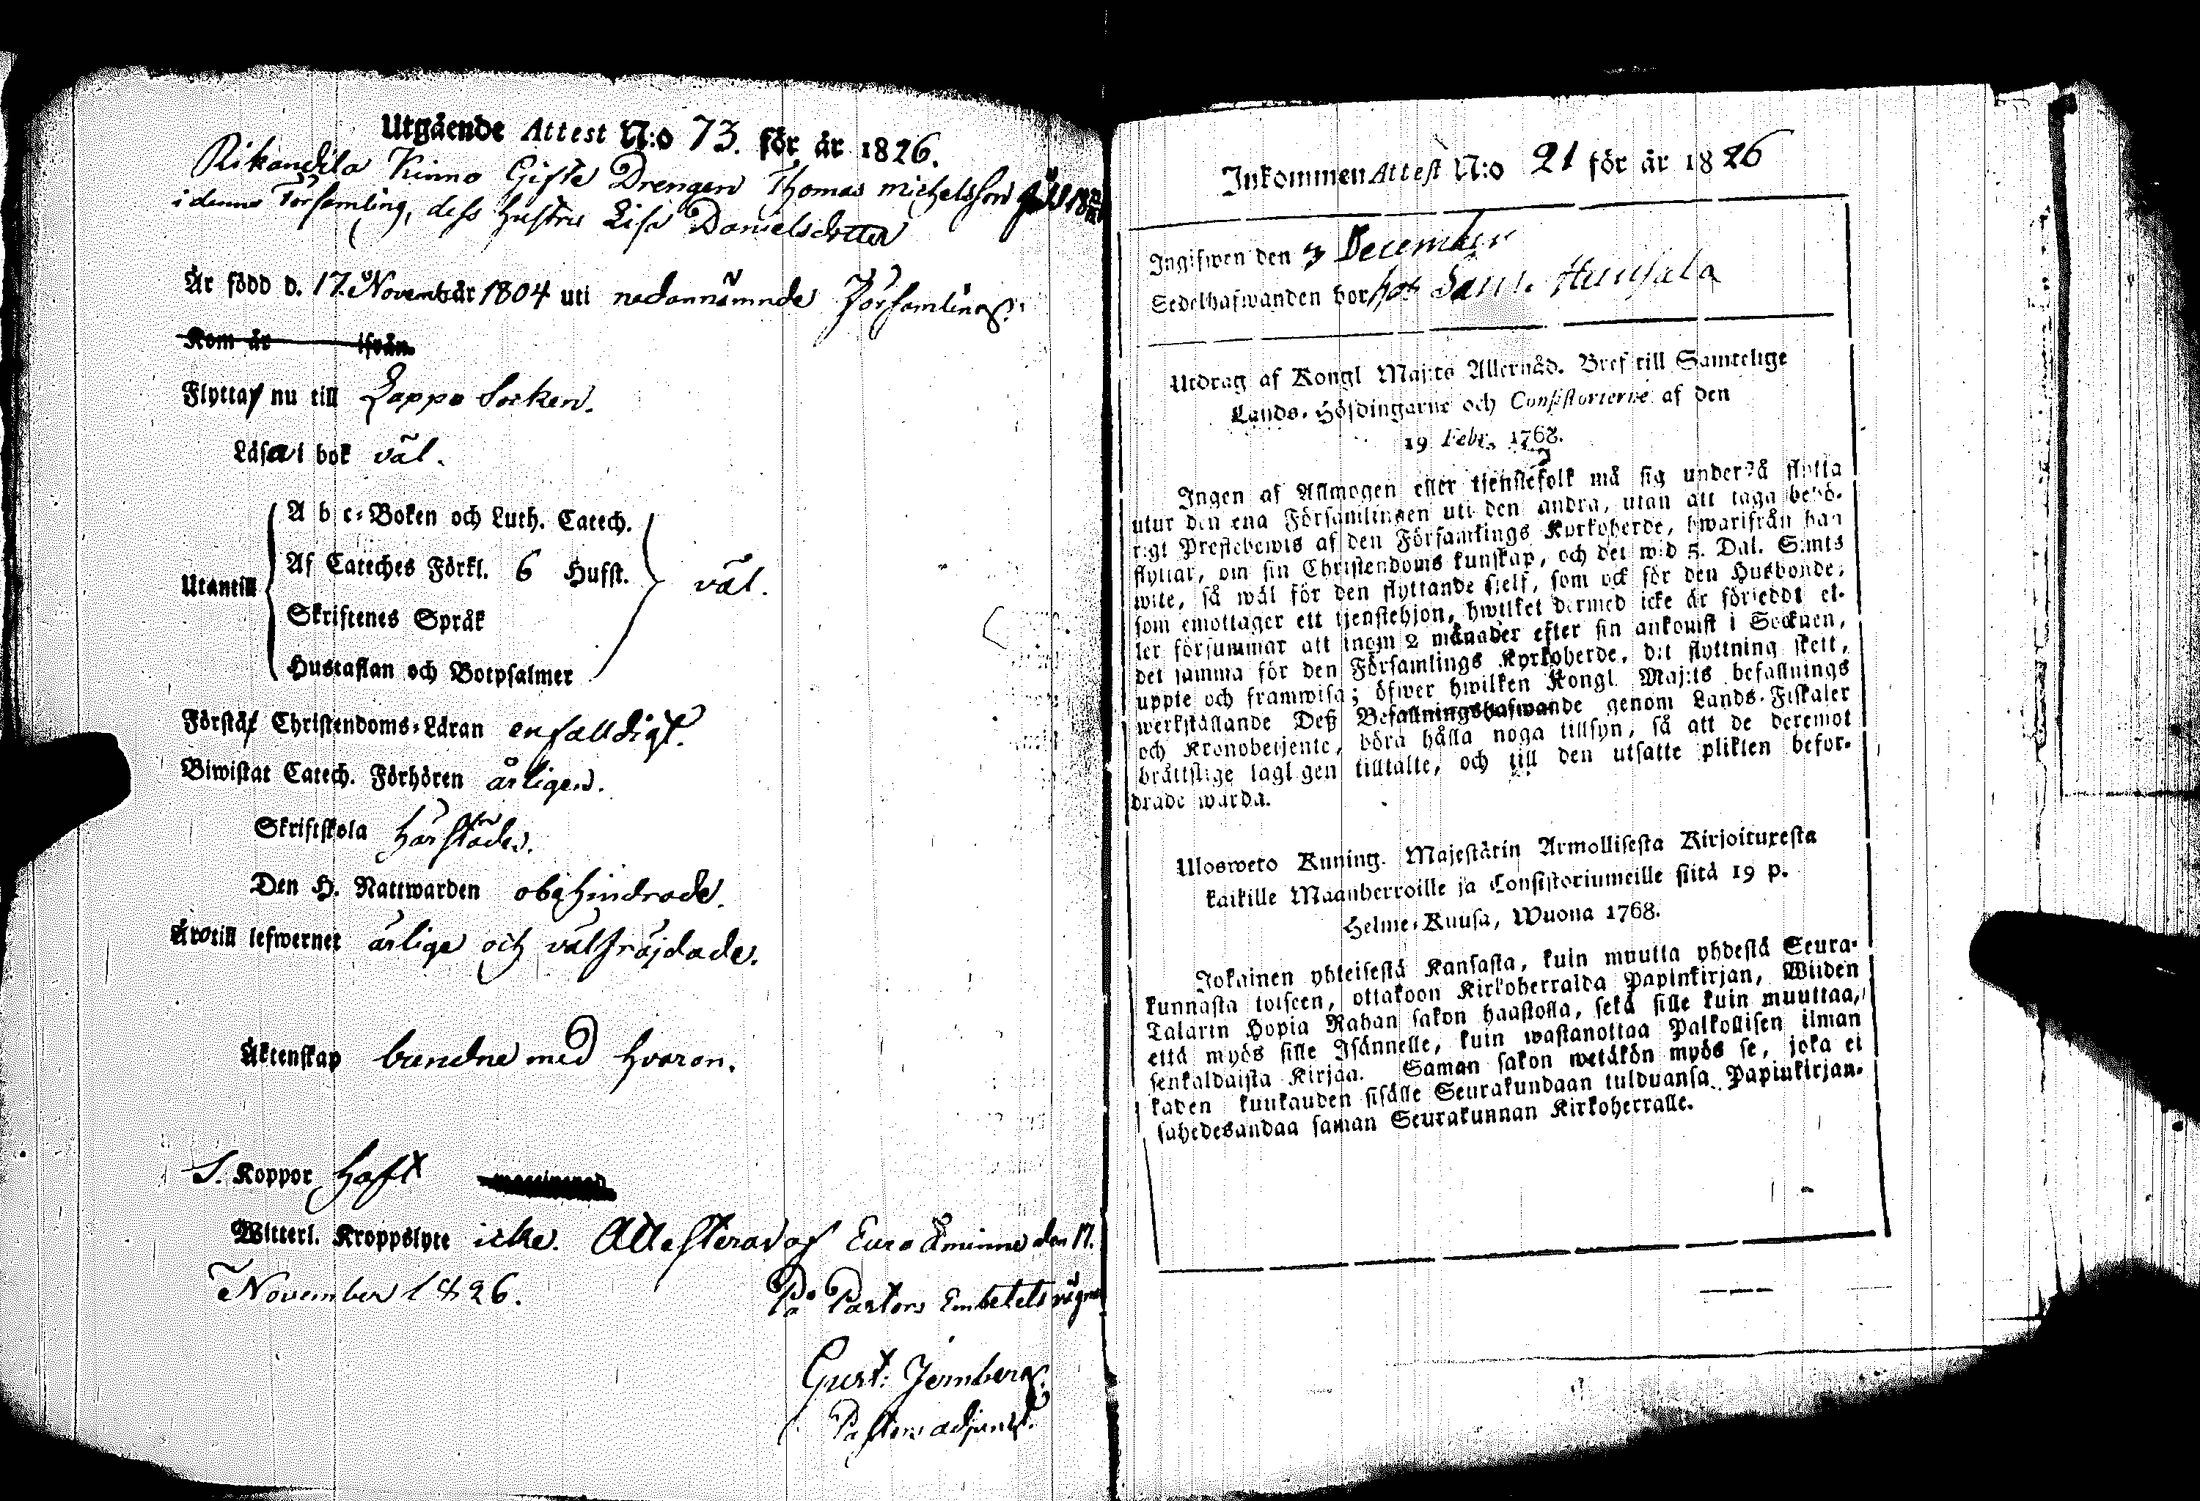 Utgående Attest N:o 73. för år 1826.
Kinno Gifte Drengen Thomas michelsson
i denne Församling, dess hustru Lisa Danielsdotter
Är född d. 17. Novemb år 1804 uti nedannämnde Församling.
Kom år ifrån
Flytta nu till Lappo Socken.
Läsa i bok väl.
A b c-Boken och Luth. Catech.
Af Cateches Förkl. 6 Hufst.
Utantill väl.
Skriftenes Språk
Hustaflan och Botpsalmer
Förstå Christendoms-Läran enfalldigt.
Biwistat Catech. Förhören årligen.
Skriftskola härstädes.
Den H. Nattwarden obehindrade.
Äro till lefwernet ärlige och välfräjdade.
Äktenskap bundne med hvaran.
S. Koppor haft
Witterl. Kroppslyte icke. Attesterar af Euraåminne den 17.
November 1826.
På Pastors Embetets vägnar
Gust: Jernberg.
Pastors adjunct.
Inkommen Attest N:o 21 för år 1826
Ingifwen den 3 December
Sedelhafwanden bor hos
Utdrag af Kongl Maj:ts Allernåd. Bref till Samtelige
Lands-Höfdingarne och Consistorierne af den
19 Febr. 1768.
Ingen af Allmogen eller tjenstefolk må sig understå flytta
utur den ena Församlingen uti den andra, utan att taga behö-
rigt Prestebewis af den Församlings Kyrkoherde, hwarifrån han
flyttar, om sin Christendoms kunskap, och det wid 5. Dal. S:mts
wite, så wäl för den flyttande sjelf, som ock för den Husbonde,
som emottager ett tjenstehjon, hwilket dermed icke är försedd el-
ler försummar att inom 2 månader efter sin ankomst i Socknen,
det samma för den Församlings Kyrkoherde, dit flyttning skett,
uppte och framwisa; öfwer hwilken Kongl Maj:ts befallnings
werkställande Deß Befallningshafwande genom Lands-Fiskaler
och Kronobetjente, böra hålla noga tillsyn, så att de deremot
brättslige lagl gen tilltalte, och till den utsatte plikten befor-
drade warda.
Ulosweto Kuning. Majestätin Armollisesta Kirjoituxesta
kaikille Maanherroille ja Consistoriumeille siitä 19 p.
Helme-Kuusa, Wuona 1768.
Jokainen yhteisestä Kansasta, kuin muutta yhdestä Seura-
kunnasta toiseen, ottakoon Kirkoherralda Papinkirjan, Wiiden
Talarin Hopia Rahan sakon haastolla, sekä sille kuin muuttaa,
että myös sille Isännelle, kuin wastanottaa Palkollisen ilman
senkaldaista Kirjaa. Saman sakon wetäkön myös se, joka ei
kaden kuukauden sisälle Seurakundaan tulduansa Papinkirjan-
sahedesandaa saman Seurakunnan Kirkoherralle.